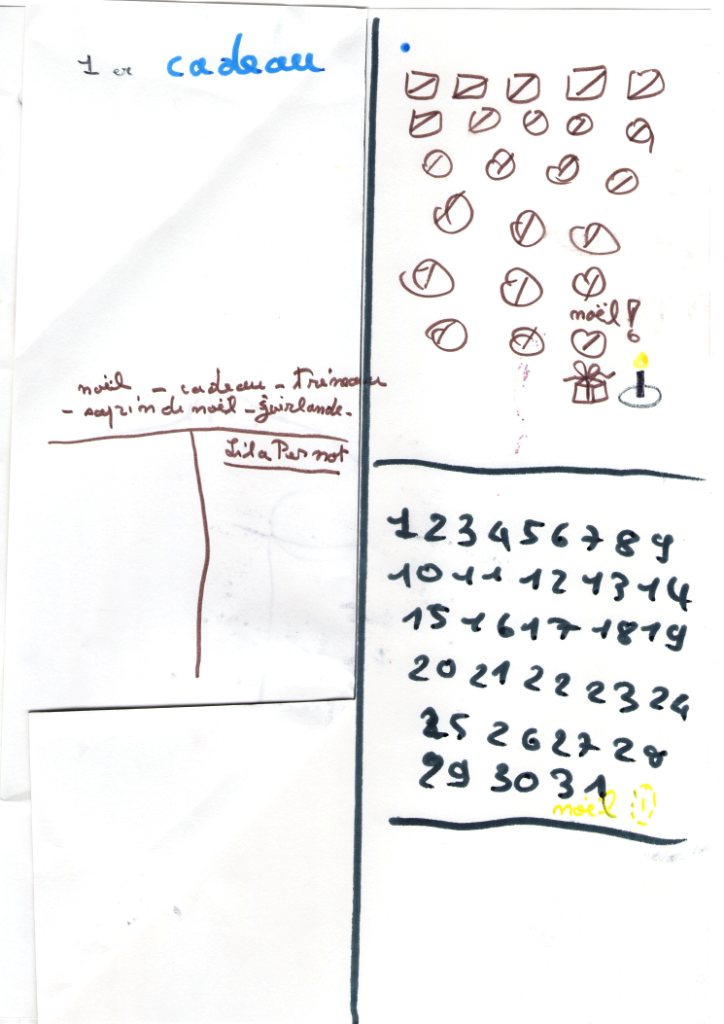 1 er cadeau
noël - cadeau - Traineau
- sapin de noël - guirlande.
Lila Pernot
noël !
1 2 3 4 5 6 7 8 9
10 11 12 13 14
15 16 17 18 19
20 21 22 23 24
25 26 27 28
29 30 31
noël